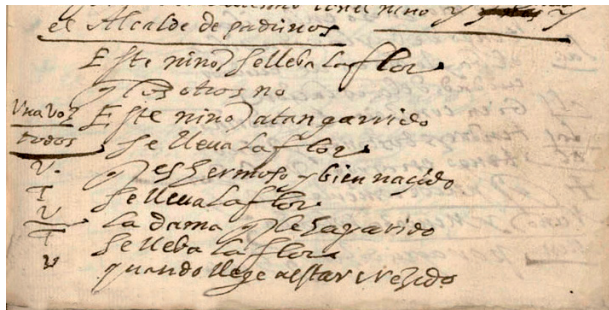 un niño y
el Alcalde de padrinos
Este niño se lleba la flor
y los otros no
Una Voz Este niño atan garrido
todos se lleua la flor
V. q es hermoso y bien naçido
T se lleua la flor
V la dama q le ha parido
T se lleba la flor
V quando llege a estar creçido